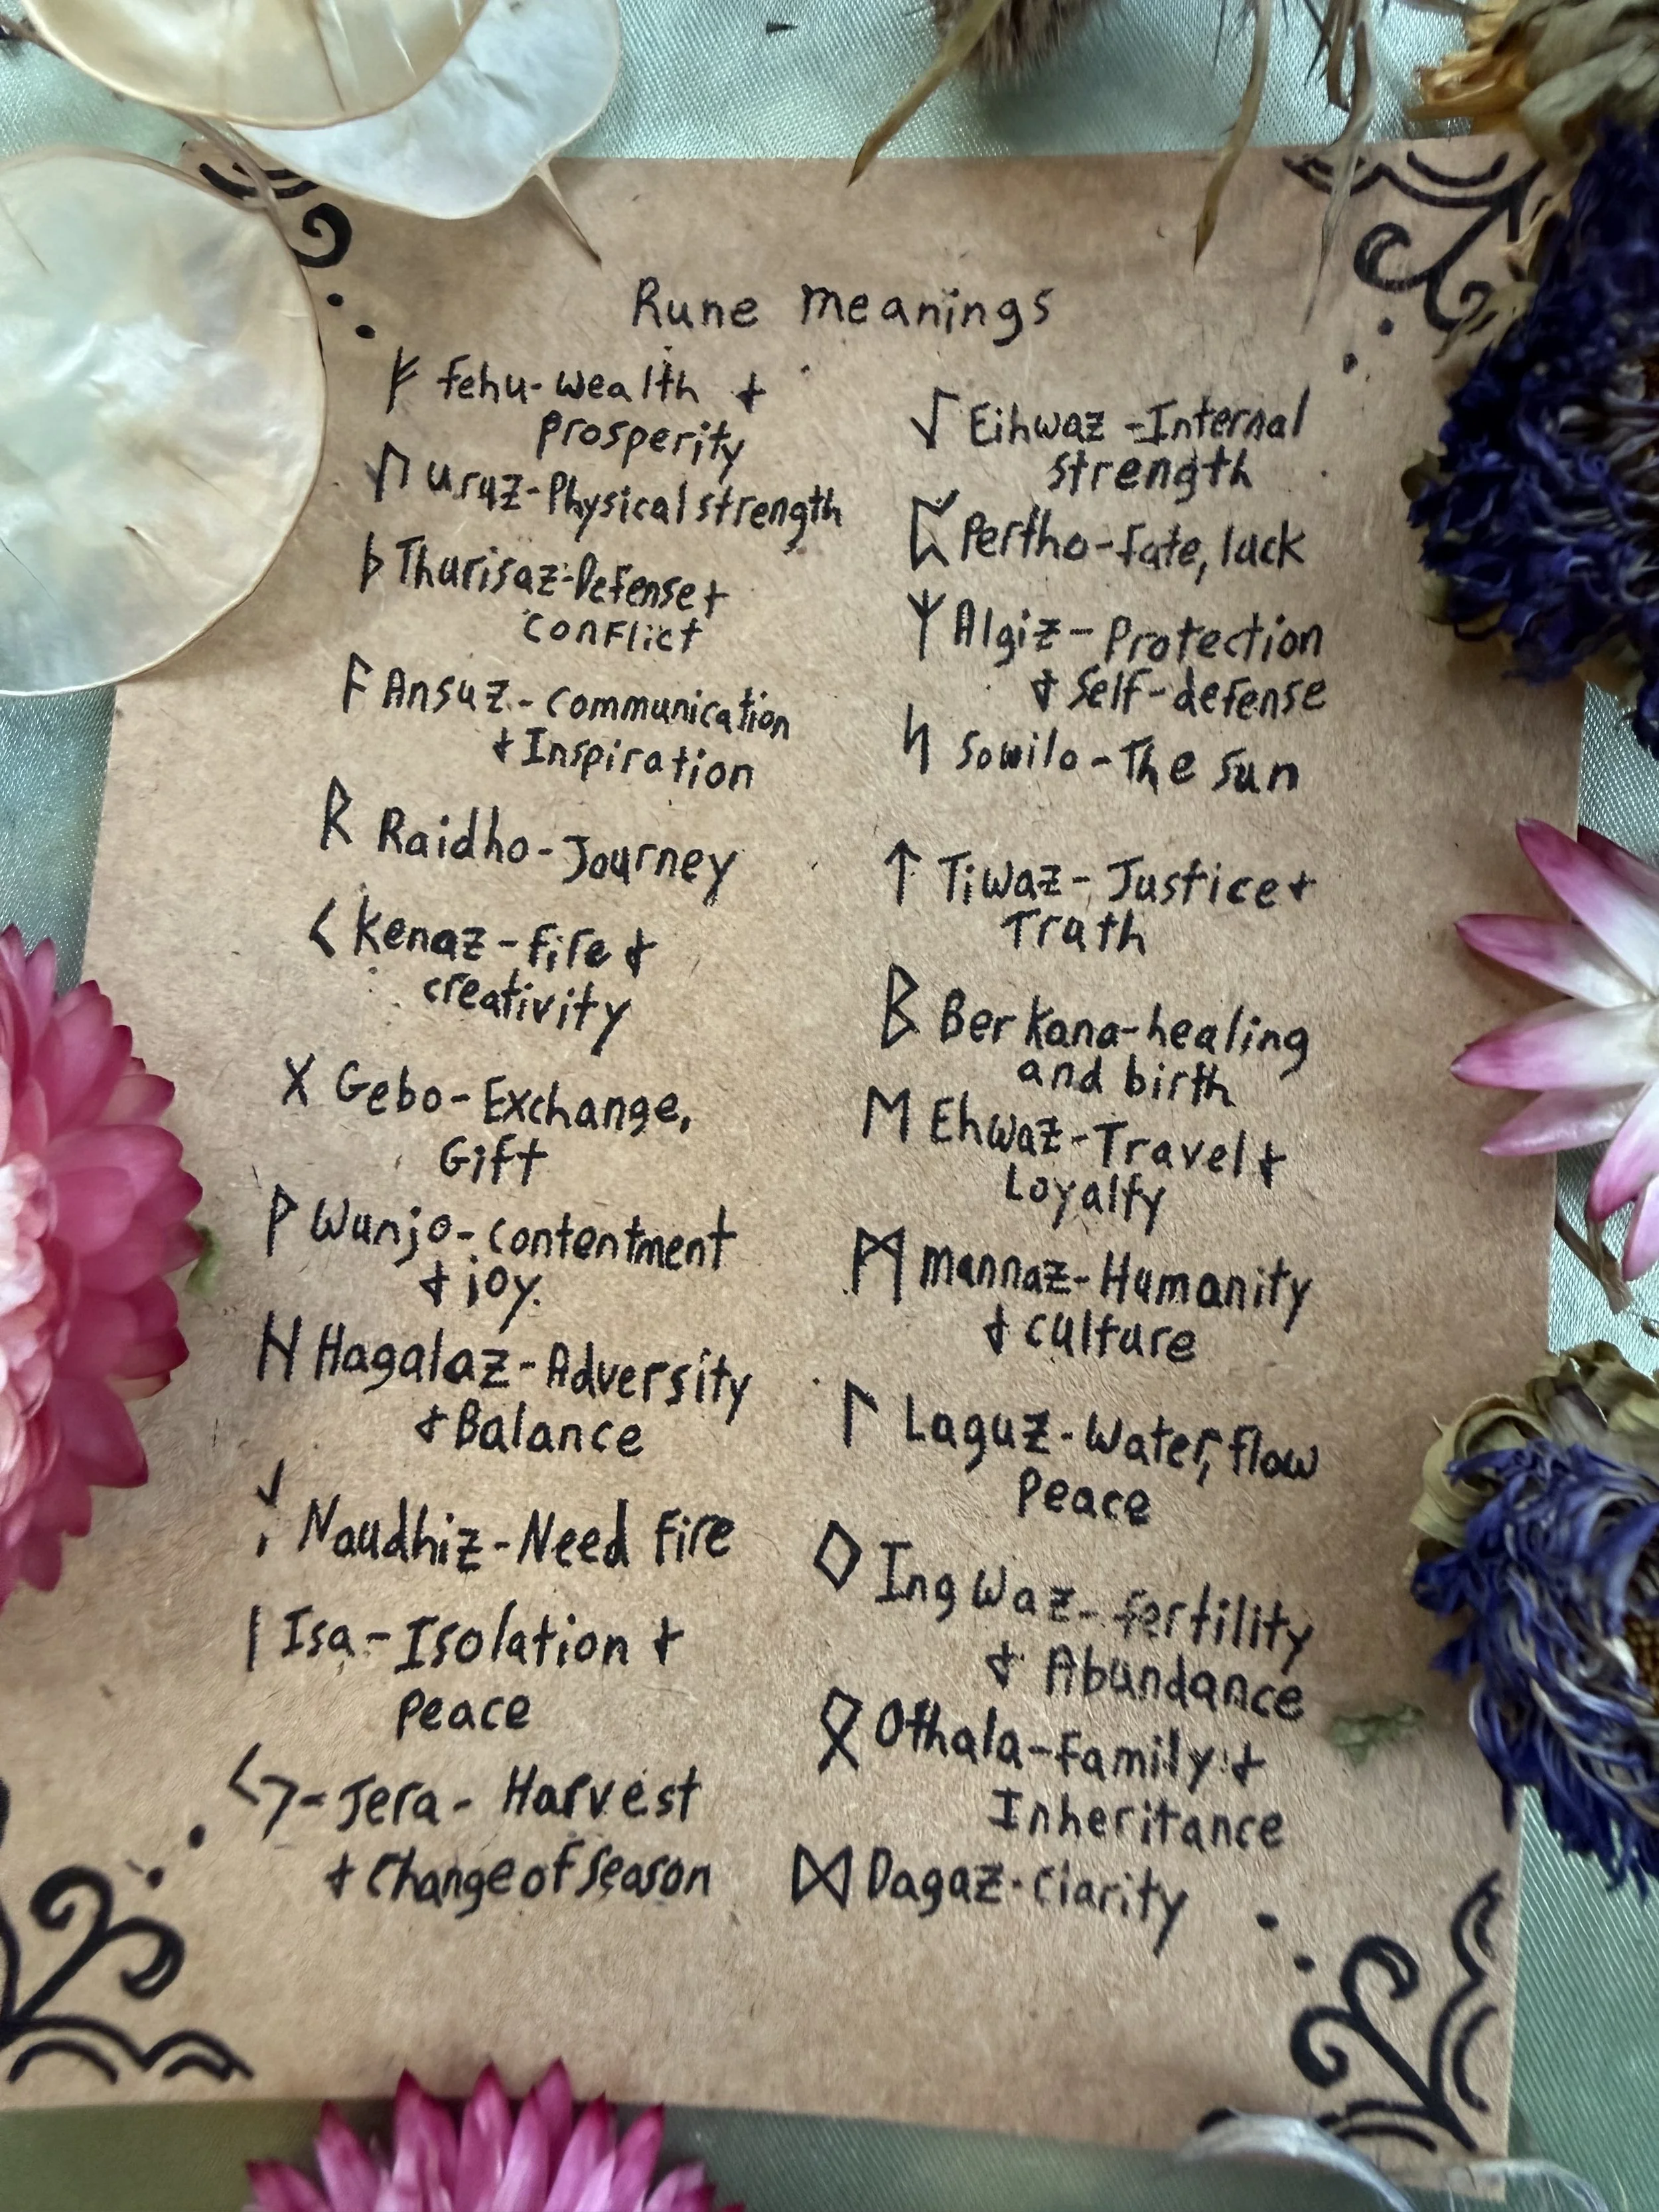 Rune meanings
ᚠ fehu-wealth +
prosperity
ᚢ uruz-Physical strength
ᚦ Thurisaz-Defense +
conflict
ᚨ Ansuz-communication
+ Inspiration
ᚱ Raidho-Journey
ᚲ Kenaz-fire +
creativity
ᚷ Gebo-Exchange,
Gift
ᚹ Wunjo-contentment
+ joy.
ᚺ Hagalaz-Adversity
+ Balance
Naudhiz-Need Fire
ᛁ Isa-Isolation +
Peace
ᛃ-Jera-Harvest
+ Change of season
ᛇ Eihwaz-Internal
strength
ᛈ Pertho-fate, luck
ᛉ Algiz-Protection
+ Self-defense
ᛋ Sowilo-The Sun
ᛏ Tiwaz-Justice +
Truth
ᛒ Berkana-healing
and birth
ᛖ Ehwaz-Travel +
Loyalty
ᛗ mannaz-Humanity
+ culture
ᛚ Laguz-Water, flow
Peace
ᛜ Ingwaz-fertility
+ Abundance
ᛟ Othala-Family +
Inheritance
ᛞ Dagaz-clarity